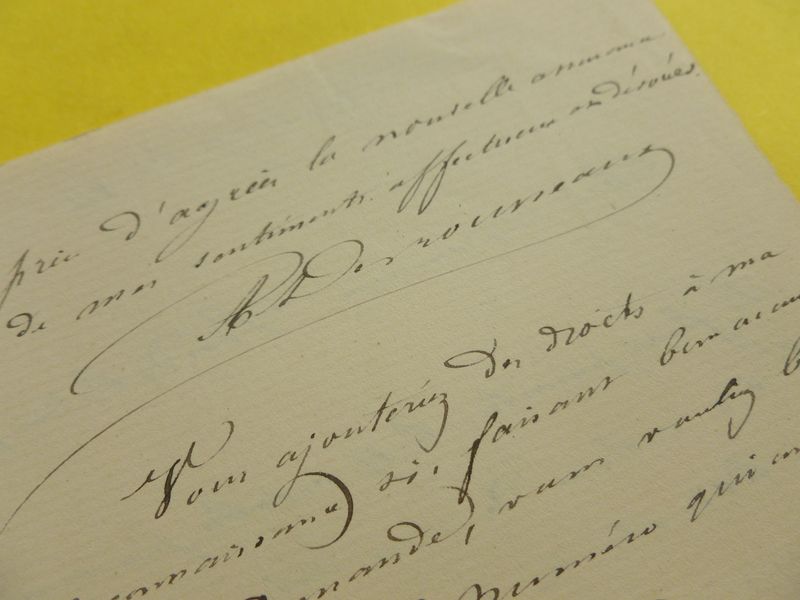 prie d'agréer la nouvelle assurance
de mes sentiments affectueux et dévoués.
Vous ajouteriez des droits à ma
connaissance si, faisant bon
demande, vous vouliez
numéro qui